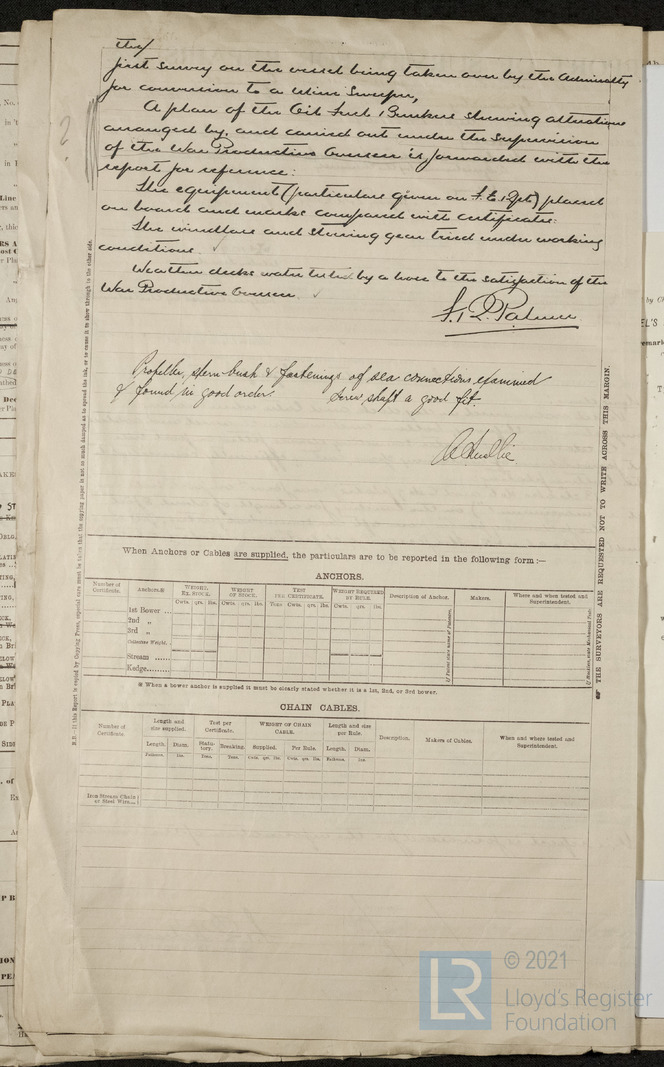 the/
first survey on the vessel being taken over by the Admiralty
for conversion to a Mine Sweeper,
A plan of the Oil Fuel Bunkers shewing alterations
arranged by, and carried out under the supervision
of the War Production Overseer is forwarded with the
report for reference:
The equipment (particulars given on F.E. Rpt) placed
on board and marks compared with certificates:
The windlass and steering gear tried under working
conditions. ✓
Weather decks water tested by a hose to the satisfaction of the
War Production Overseer. ✓
Propeller, stern bush & fastenings of sea connections examined
& found in good order. Screw shaft a good fit.
When Anchors or Cables are supplied, the particulars are to be reported in the following form:—
ANCHORS.
Number of Certificate. Anchors.※ WEIGHT, EX. STOCK. WEIGHT OF STOCK. TEST PER CERTIFICATE. WEIGHT REQUIRED BY RULE. Description of Anchor. Makers. Where and when tested and Superintendent.
Cwts. qrs. lbs. Cwts. qrs. lbs. Tons Cwts. qrs. lbs. Cwts. qrs. lbs.
1st Bower ...
2nd „
3rd „
Collective Weight.
Stream ......
Kedge.........
※ When a bower anchor is supplied it must be clearly stated whether it is a 1st, 2nd, or 3rd bower.
CHAIN CABLES.
Number of Certificate. Length and size supplied. Test per Certificate. WEIGHT OF CHAIN CABLE. Length and size per Rule. Description. Makers of Cables. When and where tested and Superintendent.
Length. Diam. Statutory. Breaking. Supplied. Per Rule. Length. Diam.
Fathoms. Ins. Tons. Tons. Cwts. qrs. lbs. Cwts. qrs. lbs. Fathoms. Ins.
Iron Stream Chain or Steel Wire...
N.B.—If this Report is copied by Copying Press, especial care must be taken that the copying paper is not so much damped as to spread the ink, or to cause it to show through to the other side.
☛ THE SURVEYORS ARE REQUESTED NOT TO WRITE ACROSS THIS MARGIN.
LR
© 2021
Lloyd's Register
Foundation